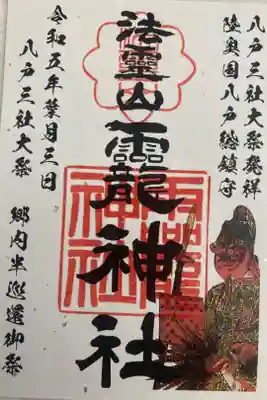 八戸三社大祭発祥
陸奥国八戸総鎮守
法靈山龗神社
龗神社
令和五年葉月三日
八戸三社大祭 郷内半巡還御祭